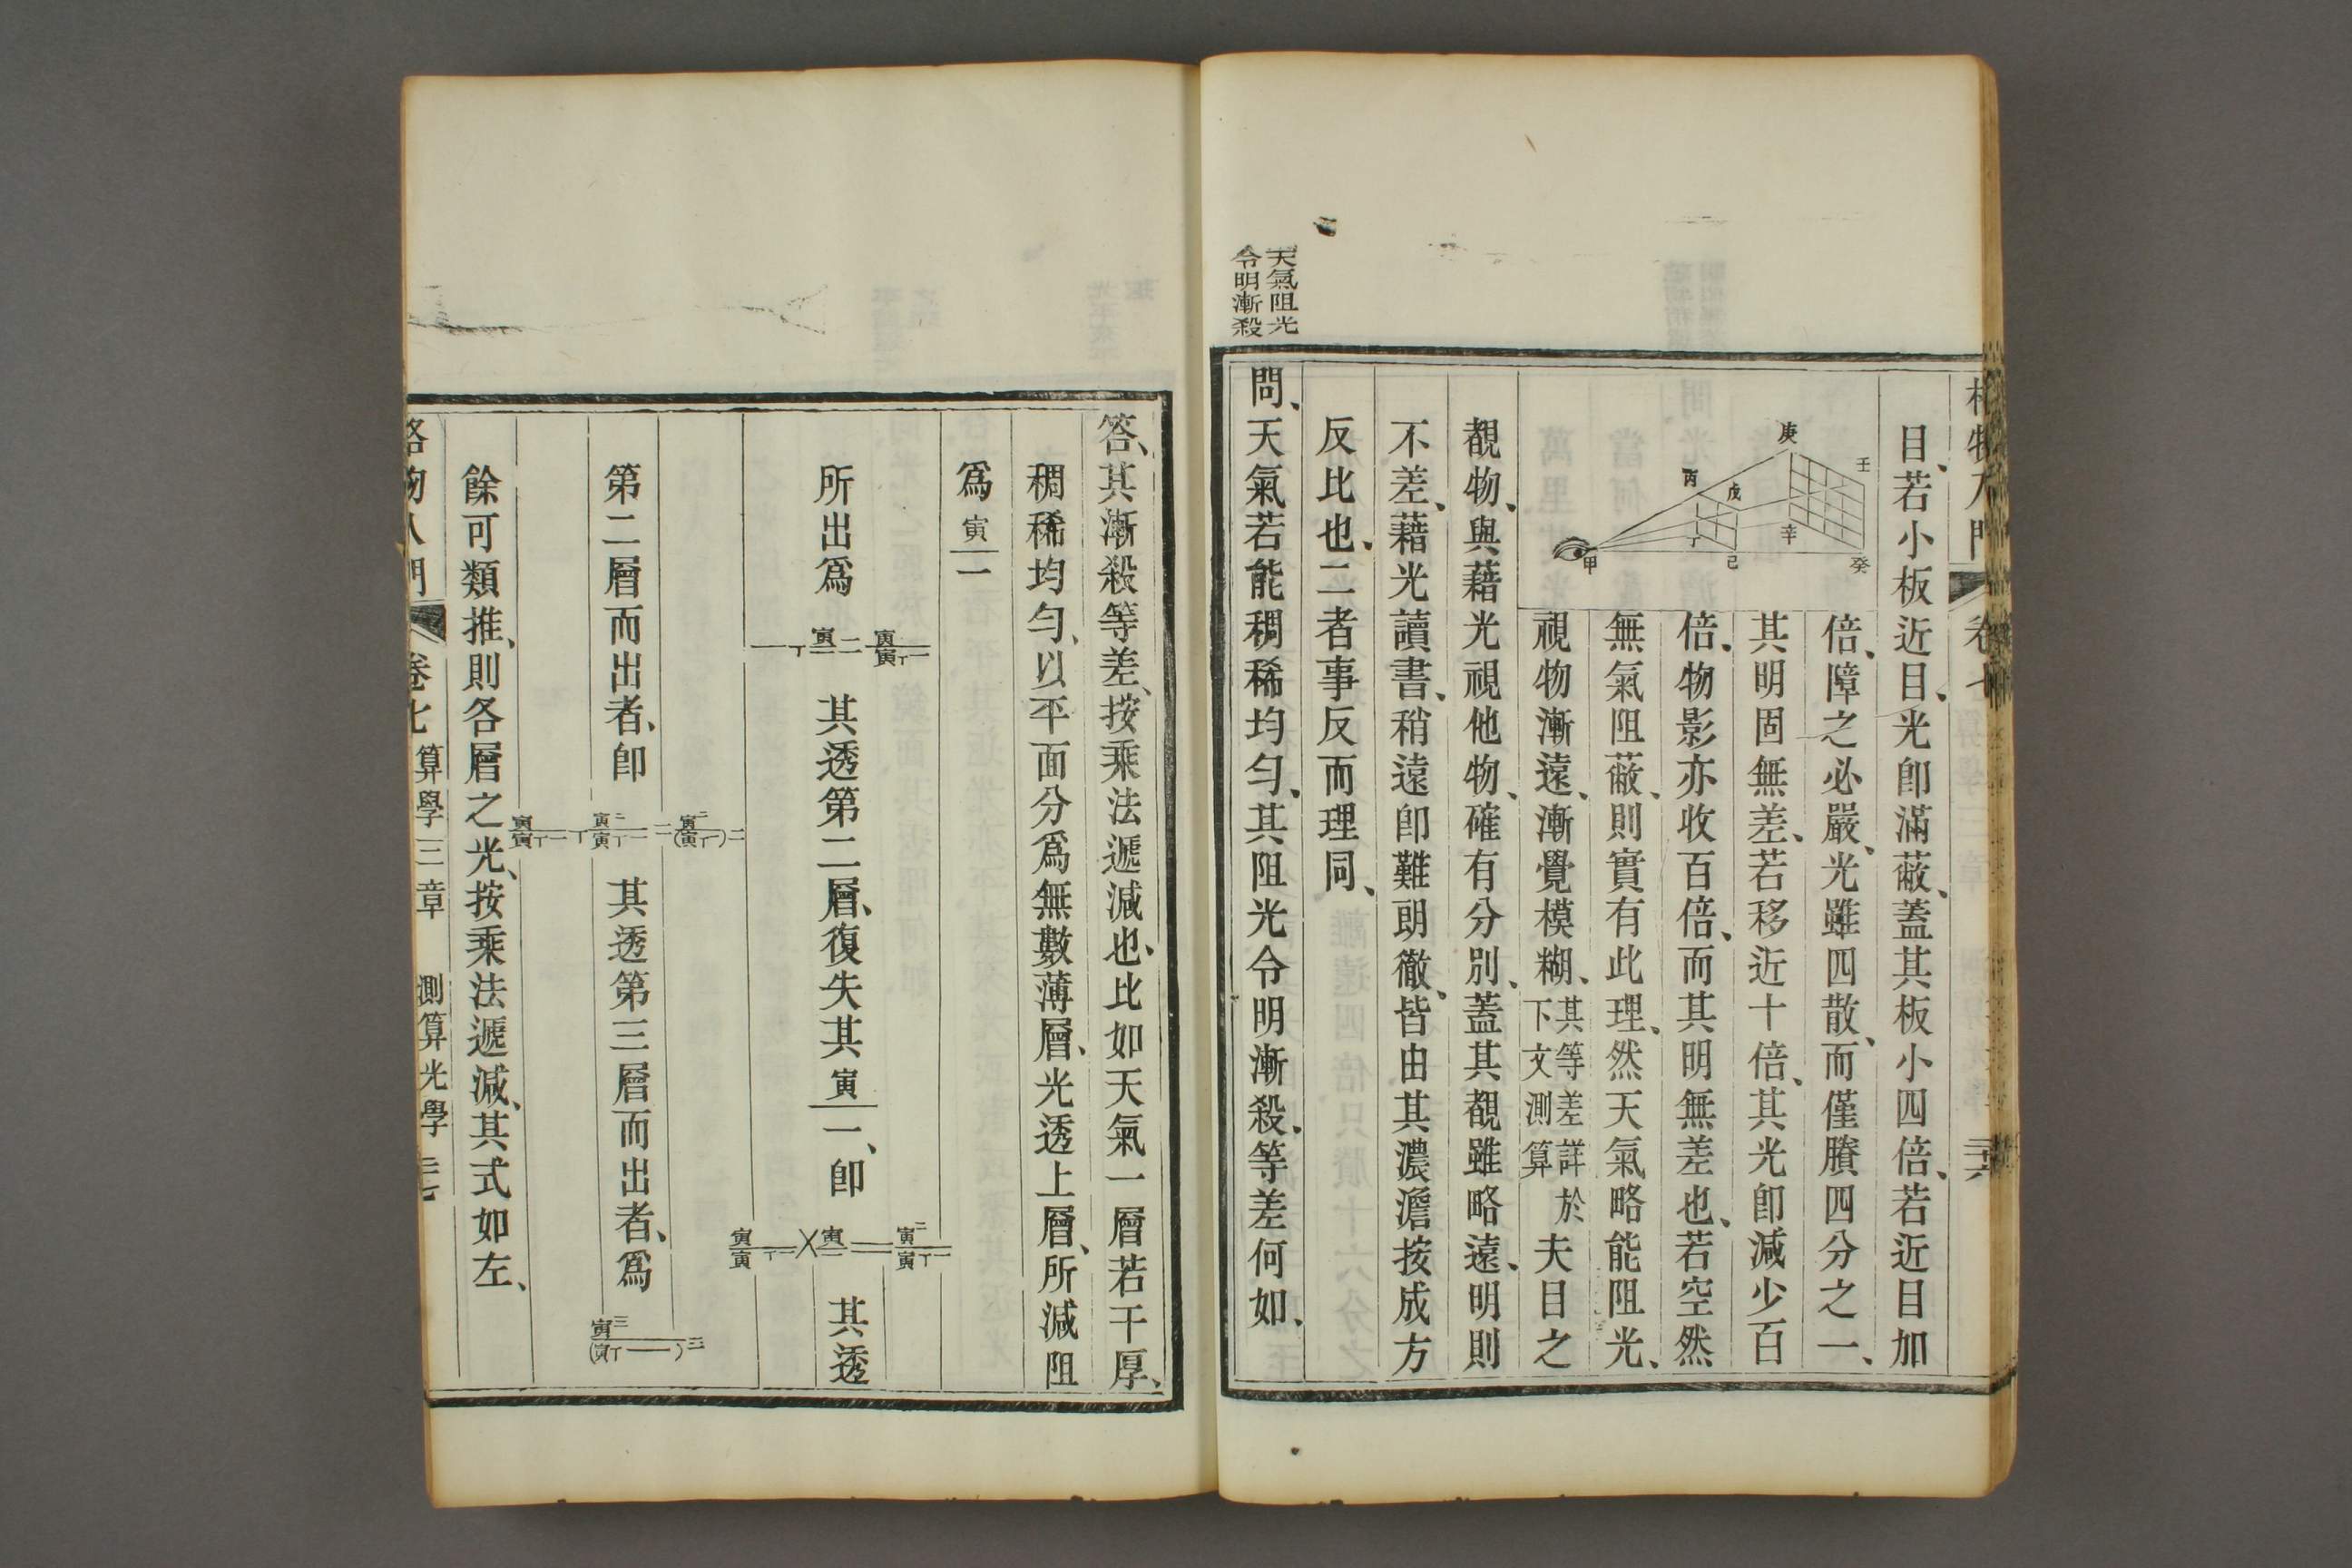 格物入門 卷七 三六
目、若小板近目、光卽滿蔽、蓋其板小四倍、若近目加
倍、障之必嚴、光雖四散、而僅賸四分之一、
其明固無差、若移近十倍、其光卽減少百
倍、物影亦收百倍、而其明無差也、若空然
無氣阻蔽、則實有此理、然天氣略能阻光、
視物漸遠、漸覺模糊、其等差詳於下文測算夫目之
庚
壬
丙
戊
丁
己
辛
癸
甲
覩物、與藉光視他物、確有分別、蓋其覩雖略遠、明則
不差、藉光讀書、稍遠卽難朗徹、皆由其濃澹按成方
反比也、二者事反而理同、
天氣阻光
令明漸殺
問、天氣若能稠稀均勻、其阻光令明漸殺、等差何如、
答、其漸殺等差、按乘法遞減也、比如天氣一層若干厚、
稠稀均勻、以平面分爲無數薄層、光透上層、所減阻
爲寅一
所出爲 一丅寅一二寅寅丅一 其透第二層、復失其寅一、卽 寅寅丅一×寅一二寅二寅丅一 其透
第二層而出者、卽 寅寅丅一丅寅二寅丅一二寅二(寅丅一)二 其透第三層而出者、爲 寅三(寅丅一)三
餘可類推、則各層之光、按乘法遞減、其式如左、
格物入門 卷七 算學三章 測算光學 三七